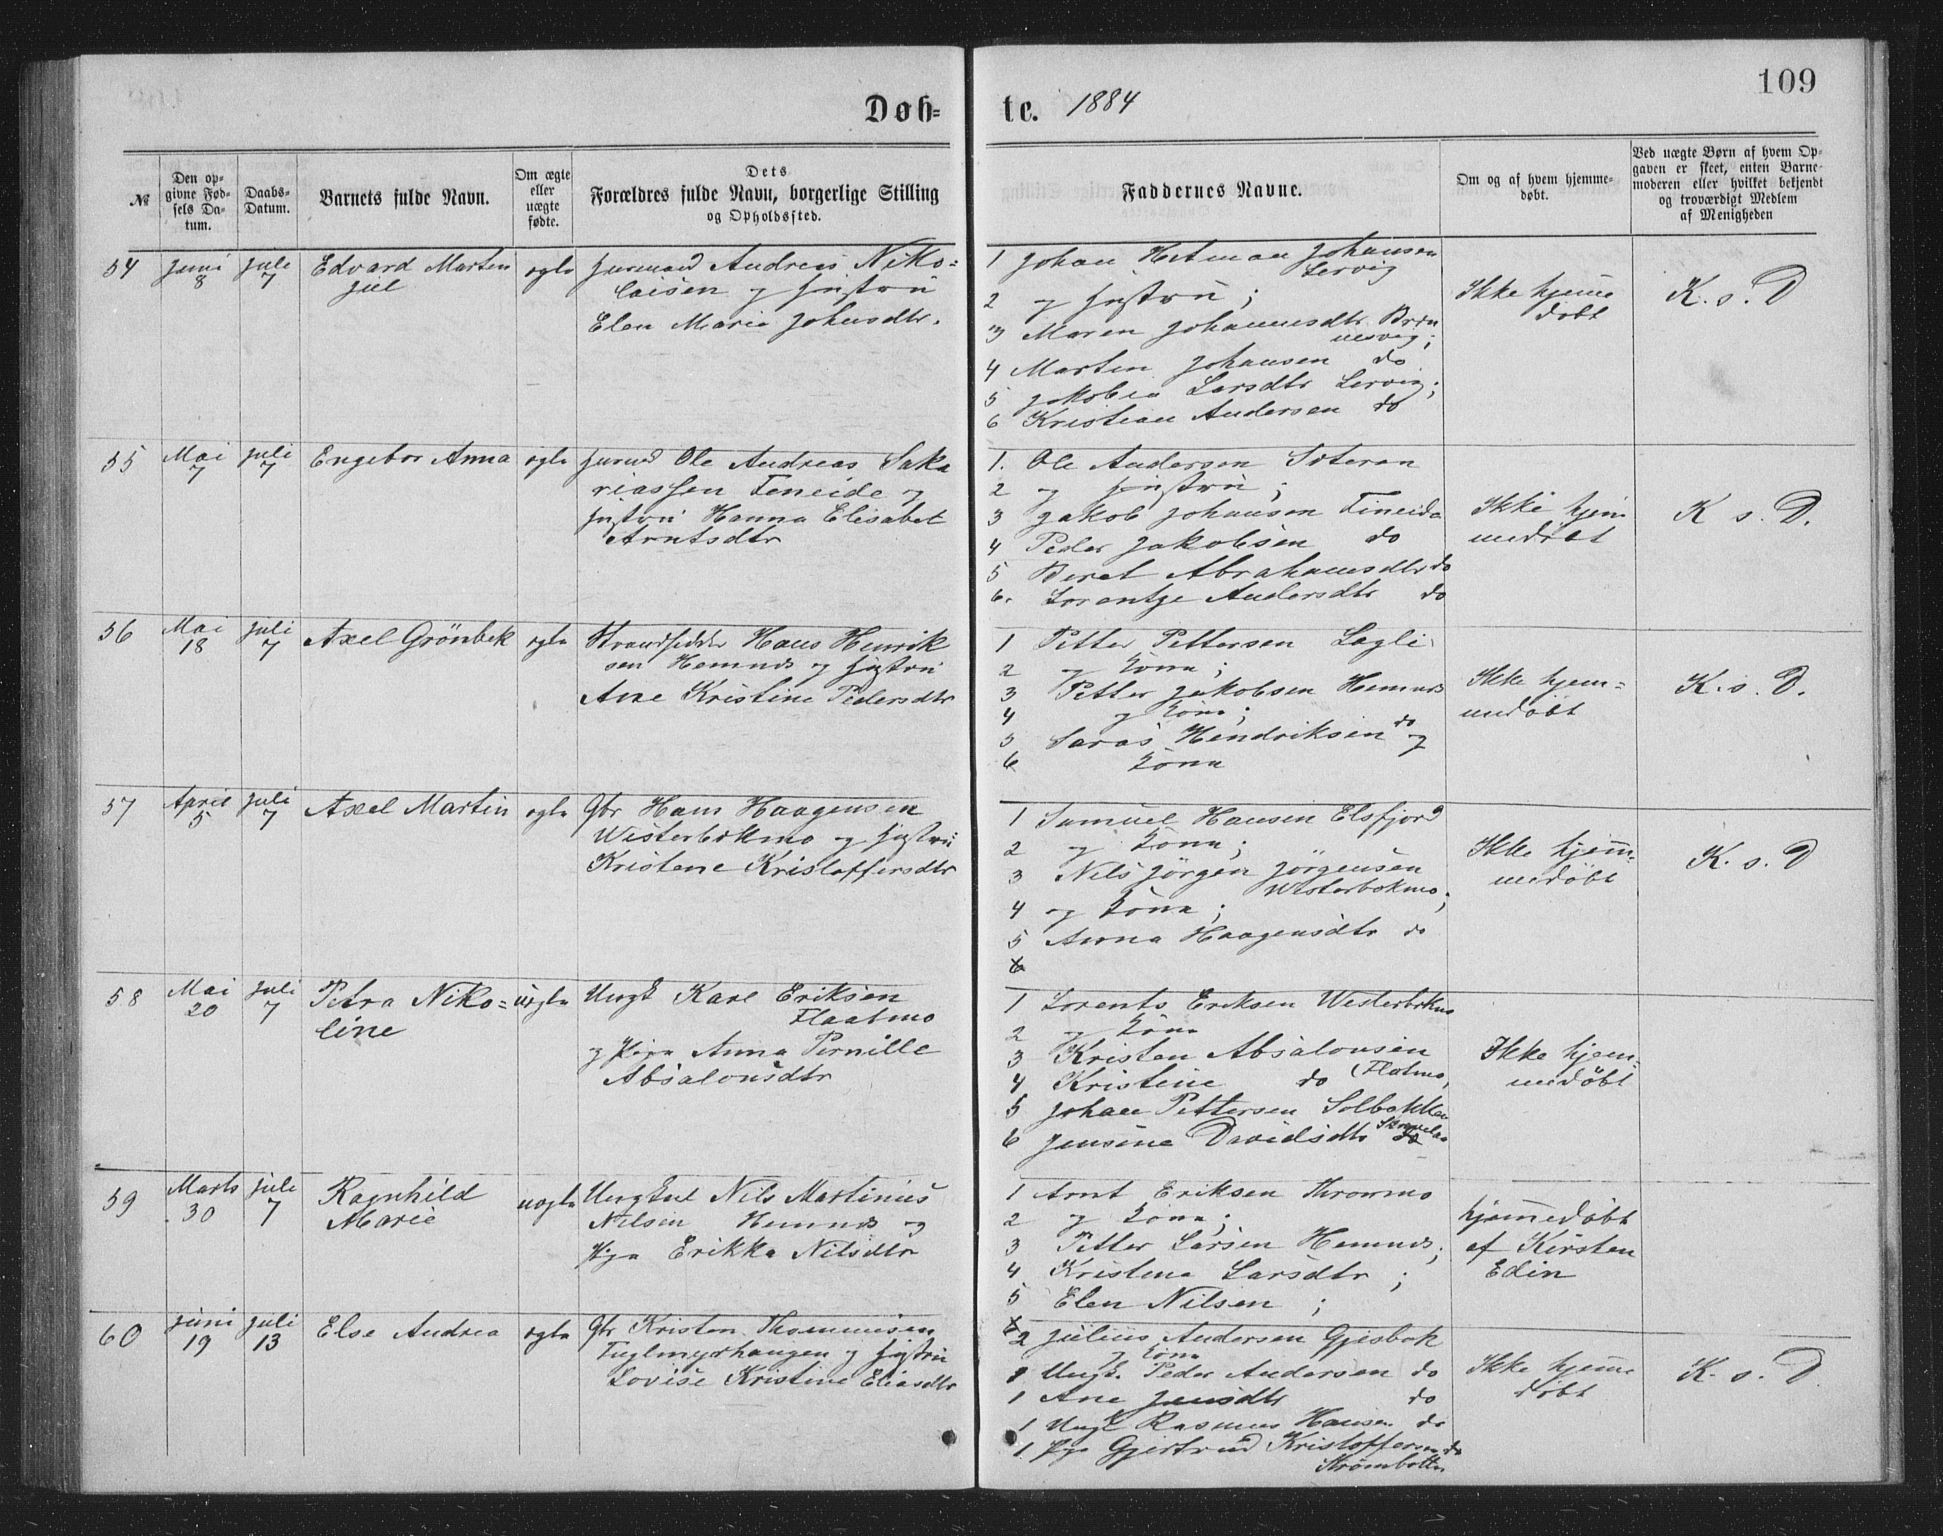 109
Døb= te. 1884
№
Den op-
givne Fød-
sels Da-
tum.
Daabs-
Datum.
Barnets fulde Navn.
Om ægte
eller
uægte
fødte.
Dets
Forældres fulde Navn, borgerlige Stilling
og Opholdssted.
Faddernes Navne.
Om og af hvem hjemme-
døbt.
Ved uægte Børn af hvem Op-
gaven er skeet, enten Barne-
moderen eller hvilket bekjendt
og troværdigt Medlem
af Menigheden
54
Juni
8
Juli
7
Edvard Marten
Juel
ægte
Husmand Andreas Niko=
laisen og Hustru
Elen Marie Johnsdtr.
1 Johan Hetman Johansen
Lervig
2 og Hustru ;
3 Maren Johannesdtr
4 Marten Johansen do
5 Jakobia Larsdtr Lervig ;
6 Kristian Andersen do
Ikke hjemme
døbt
K. s. D
55
Mai
7
Juli
7
Engebor Anna
ægte
Husmd Ole Andreas Saka
riassen Feneide og
Hustru Hanna Elisabet
Arntsdtr
1. Ole Andersen
2 og Hustru ;
3 Jakob Johansen Fineide
4 Peder Jakobsen do
5 Beret Abrahamsdtr do
6. Lorentze Andersdtr do
Ikke hjem
medøbt
K s. D.
56
Mai
18
Juli
7
Axel Grönbek
ægte
Strandsidder Hans Henrik
sen Hemnes og Hustru
Ane Kristine Pedersdtr
1 Petter Pettersen Lagli
2 og Kona ;
3 Petter Jakobsen Hemnes
4 og Kona ;
5 Saras Hendriksen do og
6 Kona
Ikke hjem=
medøbt
K. s. D.
57
April
5
Juli
7
Axel Martin
ægte
Gbr Hans Haagensen
Westerbekmo og Hustru
Kristene Kristoffersdtr
1 Samuel Hansen Elsfjord
2 og Kona ;
3 Nils Jörgen Jörgensen
Westerbekmo ;
4 og Kona ;
5 Anna Haagensdtr do
6
Ikke hjem=
medøbt
K. s. D
58
Mai
20
Juli
7
Petra Niko=
line
uægte
Ungk Karl Eriksen
Flaatmo
og Pige Anna Pernille
Absalonsdtr
1 Lorents Eriksen Westerbekmo
2 og Kona
3 Kristen Absalonsen
4 Kristine do Flatmo,
5 Johan Pettersen Solbakken
6 Jensine Davidsdtr
Ikke hjem=
medöbt
59
Marts
30
Juli
7
Ragnhild
Marie
uægte
Ungkarl Nils Martinus
Nilsen Hemnes og
Pige Erikka Nilsdtr
1 Arnt Eriksen
2 og Kona ;
3 Petter Larsen Hemnes ;
4 Kristine Larsdtr ;
5 Elen Nilsen ;
6
hjemmedøbt
af Kirsten
Edin
60
Juni
19
Juli
13
Else Andrea
ægte
Gbr Kristen Thommesen
Fuglmyrhaugen og Hustru
Lovise Kristine Eliasdtr
2 Julius Andersen Gjesbak
og Kona
1 Ungk. Peder Andersen do
1 Ane Jensdtr do
1 Ungk Rasmus Hansen do
1. Pige Gjertrud Kristoffersen do
Strømbotten
Ikke hjemme
døbt
K. s. D